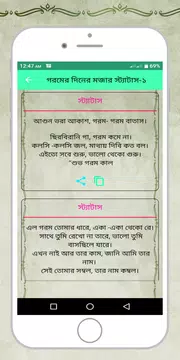 12:47 AM
61%
গরমের দিনের মজার স্ট্যাটাস-১
স্ট্যাটাস
আগুন ভরা আকাশ, গরম- গরম বাতাস।
ছিরবিরানি গা, গরম কমে না।
কলসি -কলসি জল, মাথায় দিবি কত বল।
এইতো সবে শুরু, ভালো থেকো গুরু।
"শুভ গরম কাল
স্ট্যাটাস
এল গরম তোমার ধারে, একা -একা থেকো রে।
সাথে তুমি রেখো না তারে, ভালো তুমি
বাসছিলে যারে।
এখন নাই আর তার কাম, জানি আমি তার
নাম।
সেই তোমার সম্বল, তার নাম কম্বল।